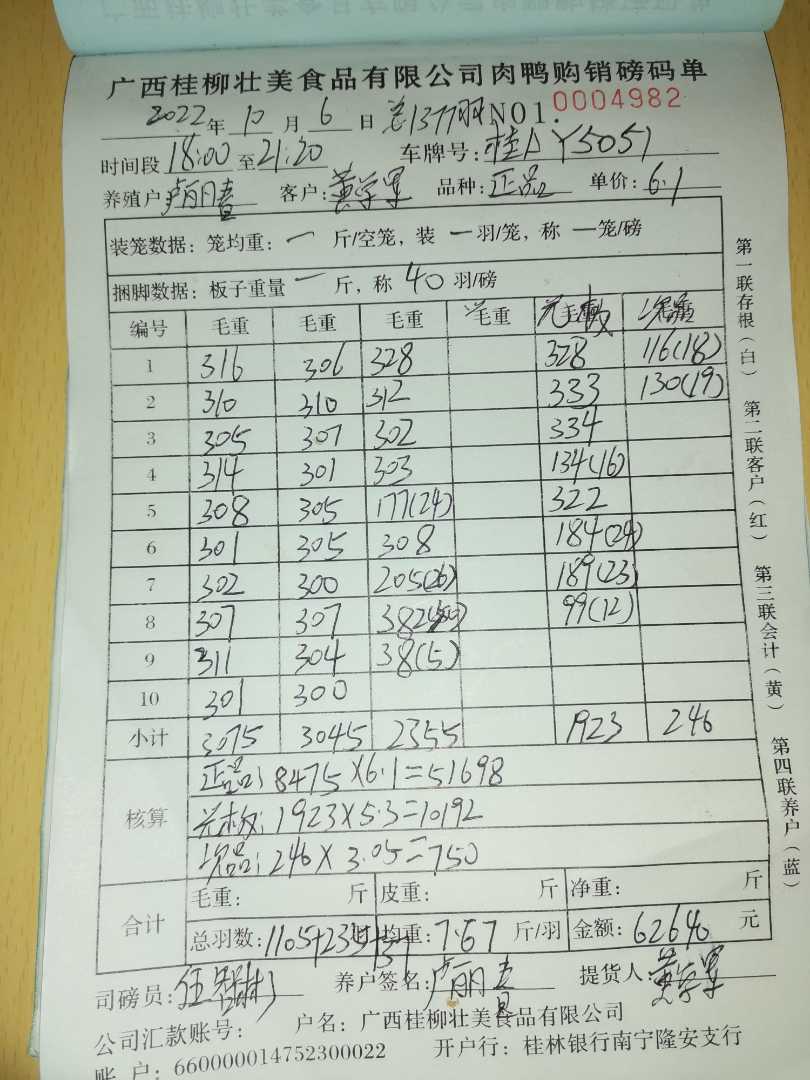 广西桂柳壮美食品有限公司肉鸭购销磅码单
2022年10月6日 总1377羽 NO1.0004982
时间段18:00至21:20 车牌号:桂AY5051
养殖户 客户:黄学军 品种:正品 单价:6.1
装笼数据:笼均重:一斤/空笼,装一羽/笼,称一笼/磅
捆脚数据:板子重量一斤,称40羽/磅
编号 毛重 毛重 毛重 毛重 毛重
1 316 306 328 328 116(18)
2 310 310 312 333 130(19)
3 305 307 302 334
4 314 301 303 134(16)
5 308 305 177(24) 322
6 301 305 308 184(24)
7 302 300 205(26) 189(23)
8 307 307 382 99(12)
9 311 304 38(5)
10 301 300
小计 3075 3045 2355 1923 246
核算
正品:8475×6.1=51698
1923×5.3=10192
次品:246×3.05=750
合计 毛重: 斤 皮重: 斤 净重: 斤
总羽数:1105+235+37 均重:7.67斤/羽 金额:62640元
司磅员: 养户签名: 提货人:黄学军
公司汇款账号: 户名:广西桂柳壮美食品有限公司
账户:660000014752300022 开户行:桂林银行南宁隆安支行
第一联存根(白) 第二联客户(红) 第三联会计(黄) 第四联养户(蓝)